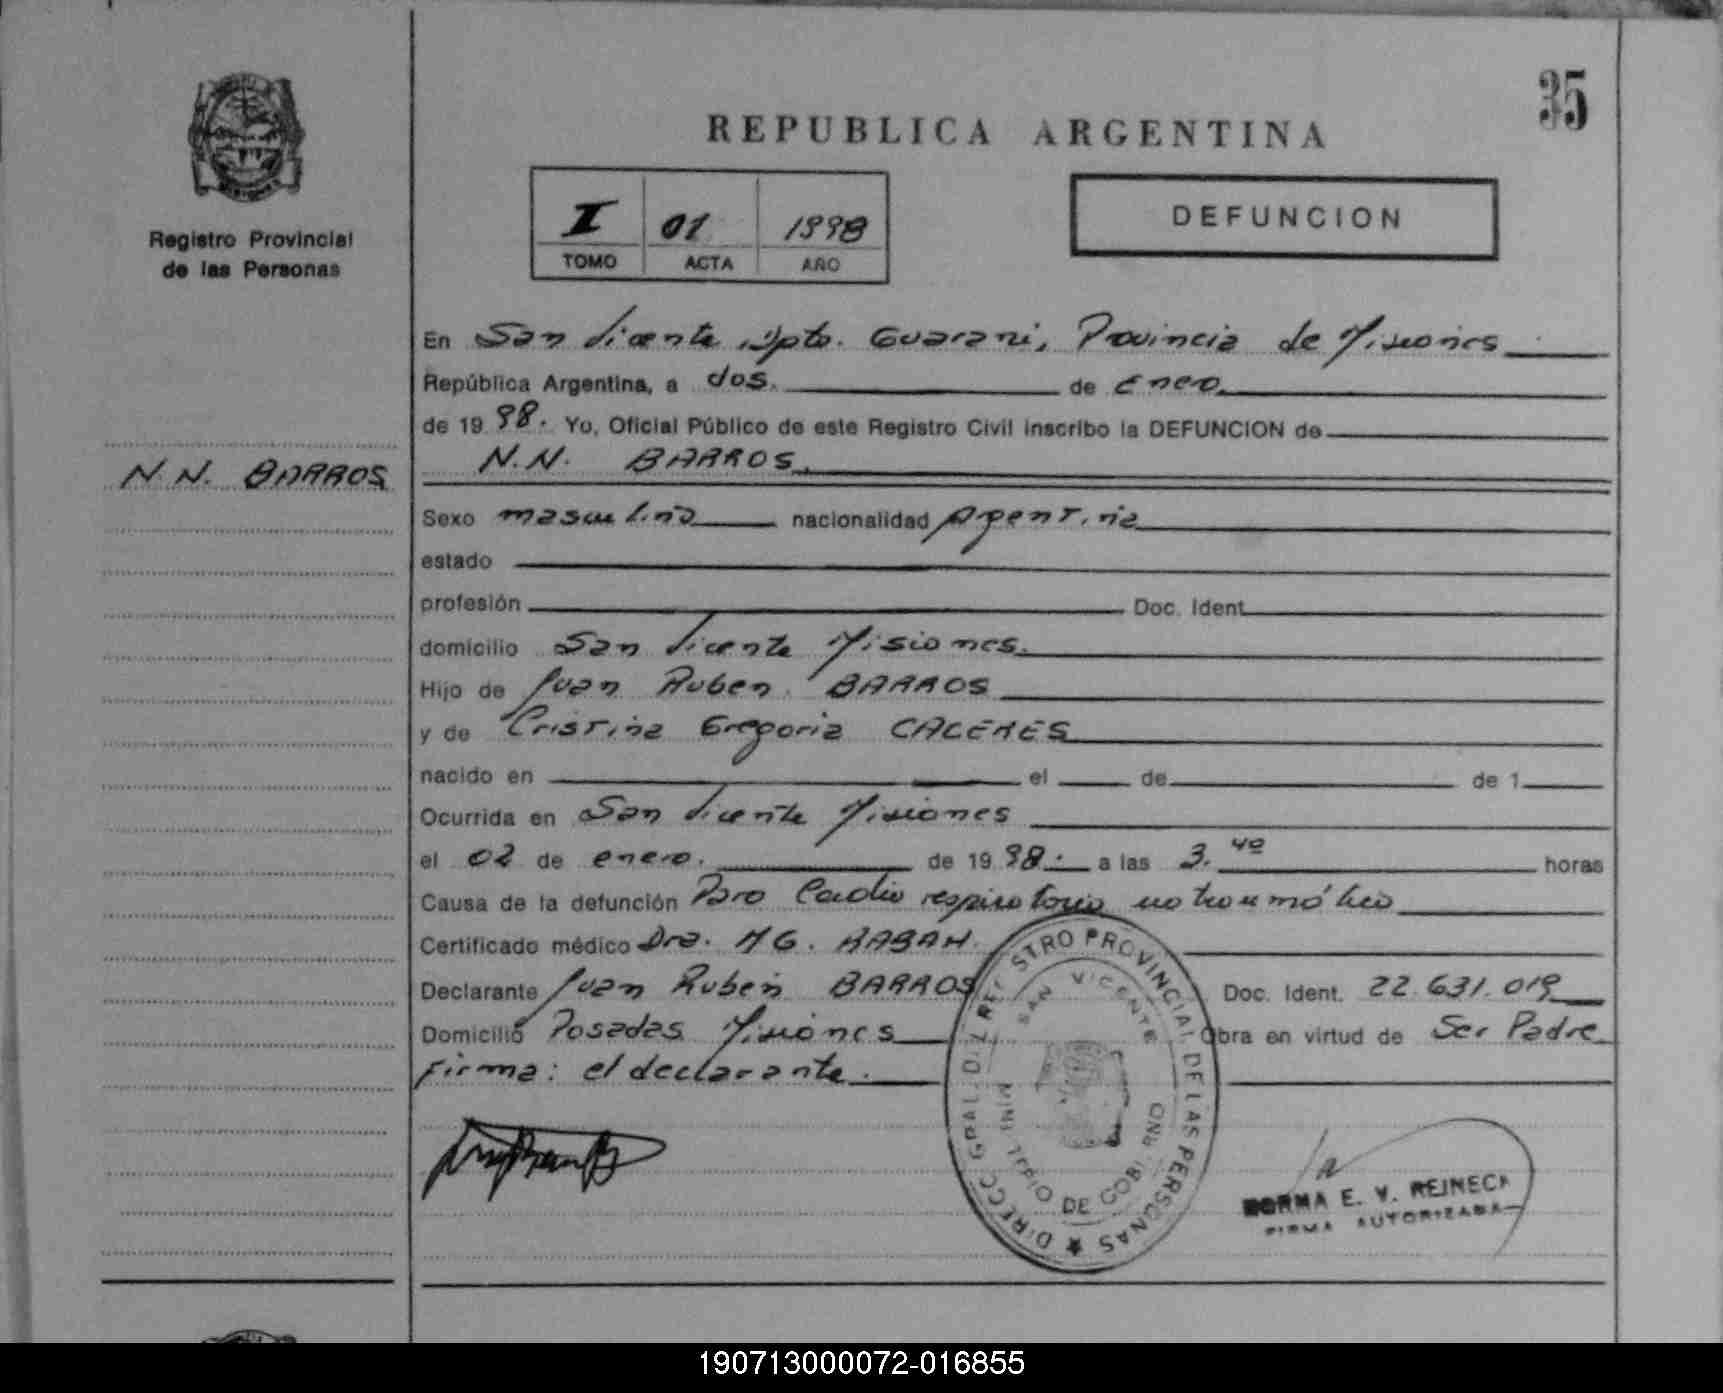 35
REPUBLICA ARGENTINA
Registro Provincial
de las Personas
I 01 1998
TOMO ACTA AÑO
DEFUNCION
En San Vicente, Dpto. Guarani, Provincia de Misiones
República Argentina, a dos. de Enero.
de 1998. Yo, Oficial Público de este Registro Civil inscribo la DEFUNCION de
N.N. BARROS
N.N. BARROS.
Sexo masculino nacionalidad Argentina
estado
profesión Doc. Ident.
domicilio San Vicente Misiones.
Hijo de Juan Ruben BARROS
y de Cristina Gregoria CACERES
nacido en el de de 1
Ocurrida en San Vicente Misiones
el 02 de enero. de 1998. a las 3.40 horas
Causa de la defunción Paro Cardio respiratorio no traumático
Certificado médico Dra. MG. RABAH.
Declarante Juan Ruben BARROS Doc. Ident. 22.631.019
Domicilio Posadas Misiones Obra en virtud de Ser Padre
Firma: el declarante.
DIRECC. GRAL. DEL REGISTRO PROVINCIAL DE LAS PERSONAS
SAN VICENTE
MINISTERIO DE GOBIERNO
NORMA E. V. REINECK
FIRMA AUTORIZADA
190713000072-016855